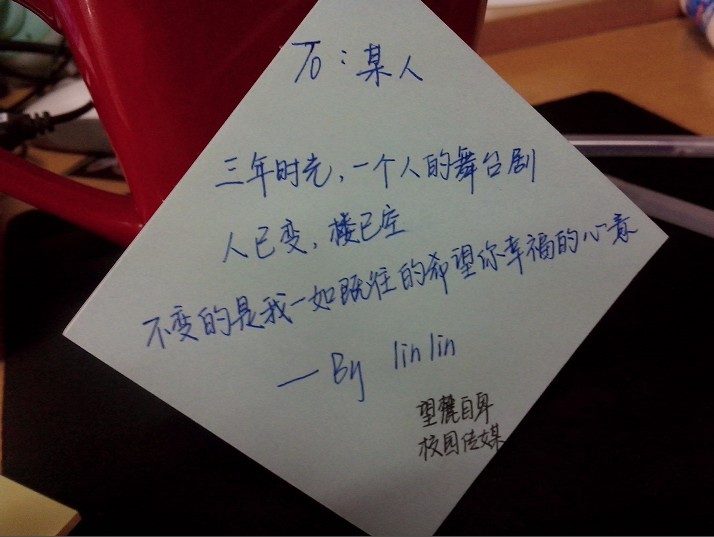 To：某人
三年时光，一个人的舞台剧
人已变，楼已空
不变的是我一如既往的希望你幸福的心意
—By linlin
望麓自卑
校园传媒